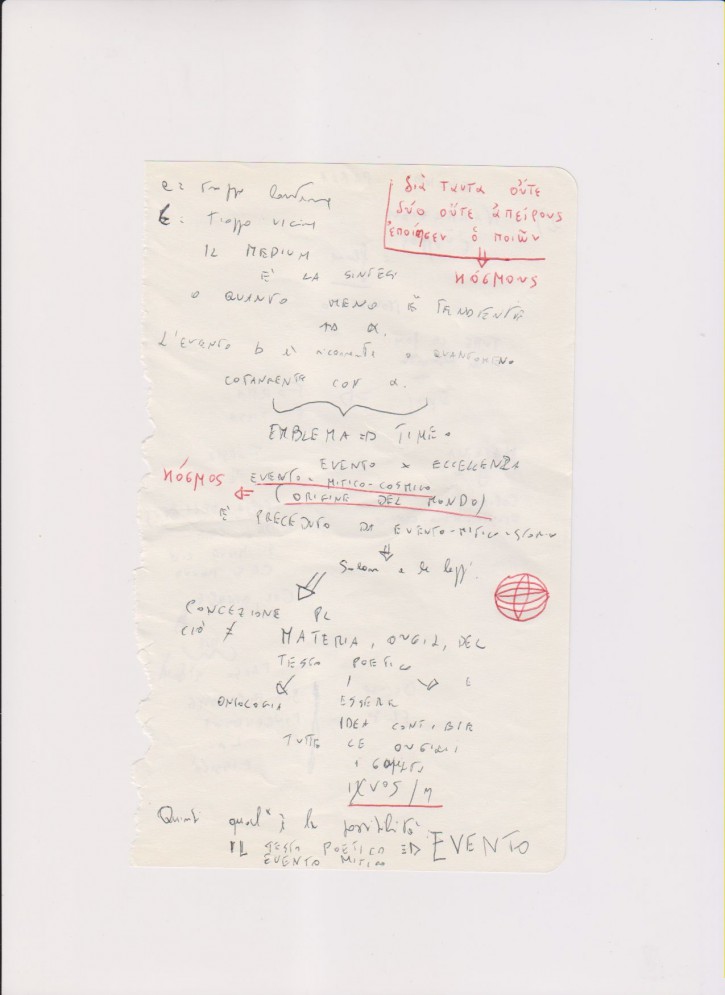 a: troppo lontano
b: troppo vicino
διὰ ταυτα οὔτε
δύο οὔτε ἀπείρους
ἐποίησεν ὁ ποιῶν
⇓
κόσμους
IL MEDIUM
E' LA SINTESI
O QUANTO MENO È TENDENTE
AD a.
L'EVENTO b è O QUANTOMENO
CON a.
EMBLEMA ⇒ TIMEO
EVENTO x ECCELLENZA
κόσμος ⇐ EVENTO - MITICO-COSMICO
(ORIGINE DEL MONDO)
È PRECEDUTO DA EVENTO-MITICO-STORICO
⇓
Solone e le leggi.
CONCEZIONE PL
CIÒ ≠ MATERIA, ORIGIN, DEL
TESTO POETICO
ONTOLOGIA ESSERE
IDEA
TUTTE LE
Quindi qual'è la possibilità
IL TESTO POETICO ⇒ EVENTO
EVENTO MITICO